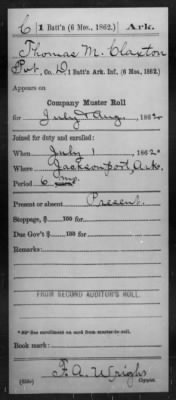 C | 1 Batt'n (6 Mos., 1862.) | Ark.
Thomas M. Claxton
Pvt, Co. D, 1 Batt'n Ark. Inf. (6 Mos., 1862.)
Appears on
Company Muster Roll
for July & Aug., 1862.
Joined for duty and enrolled:
When July 1 186 2*
Where Jacksonport, Ark.
Period 6 mos. years
Present or absent Present.
Stoppage, $ 100 for
Due Gov't $ 100 for
Remarks:
FROM SECOND AUDITOR'S ROLL.
*See enrollment on card from muster-in roll.
Book mark:
F. A. Wright
Copyist.